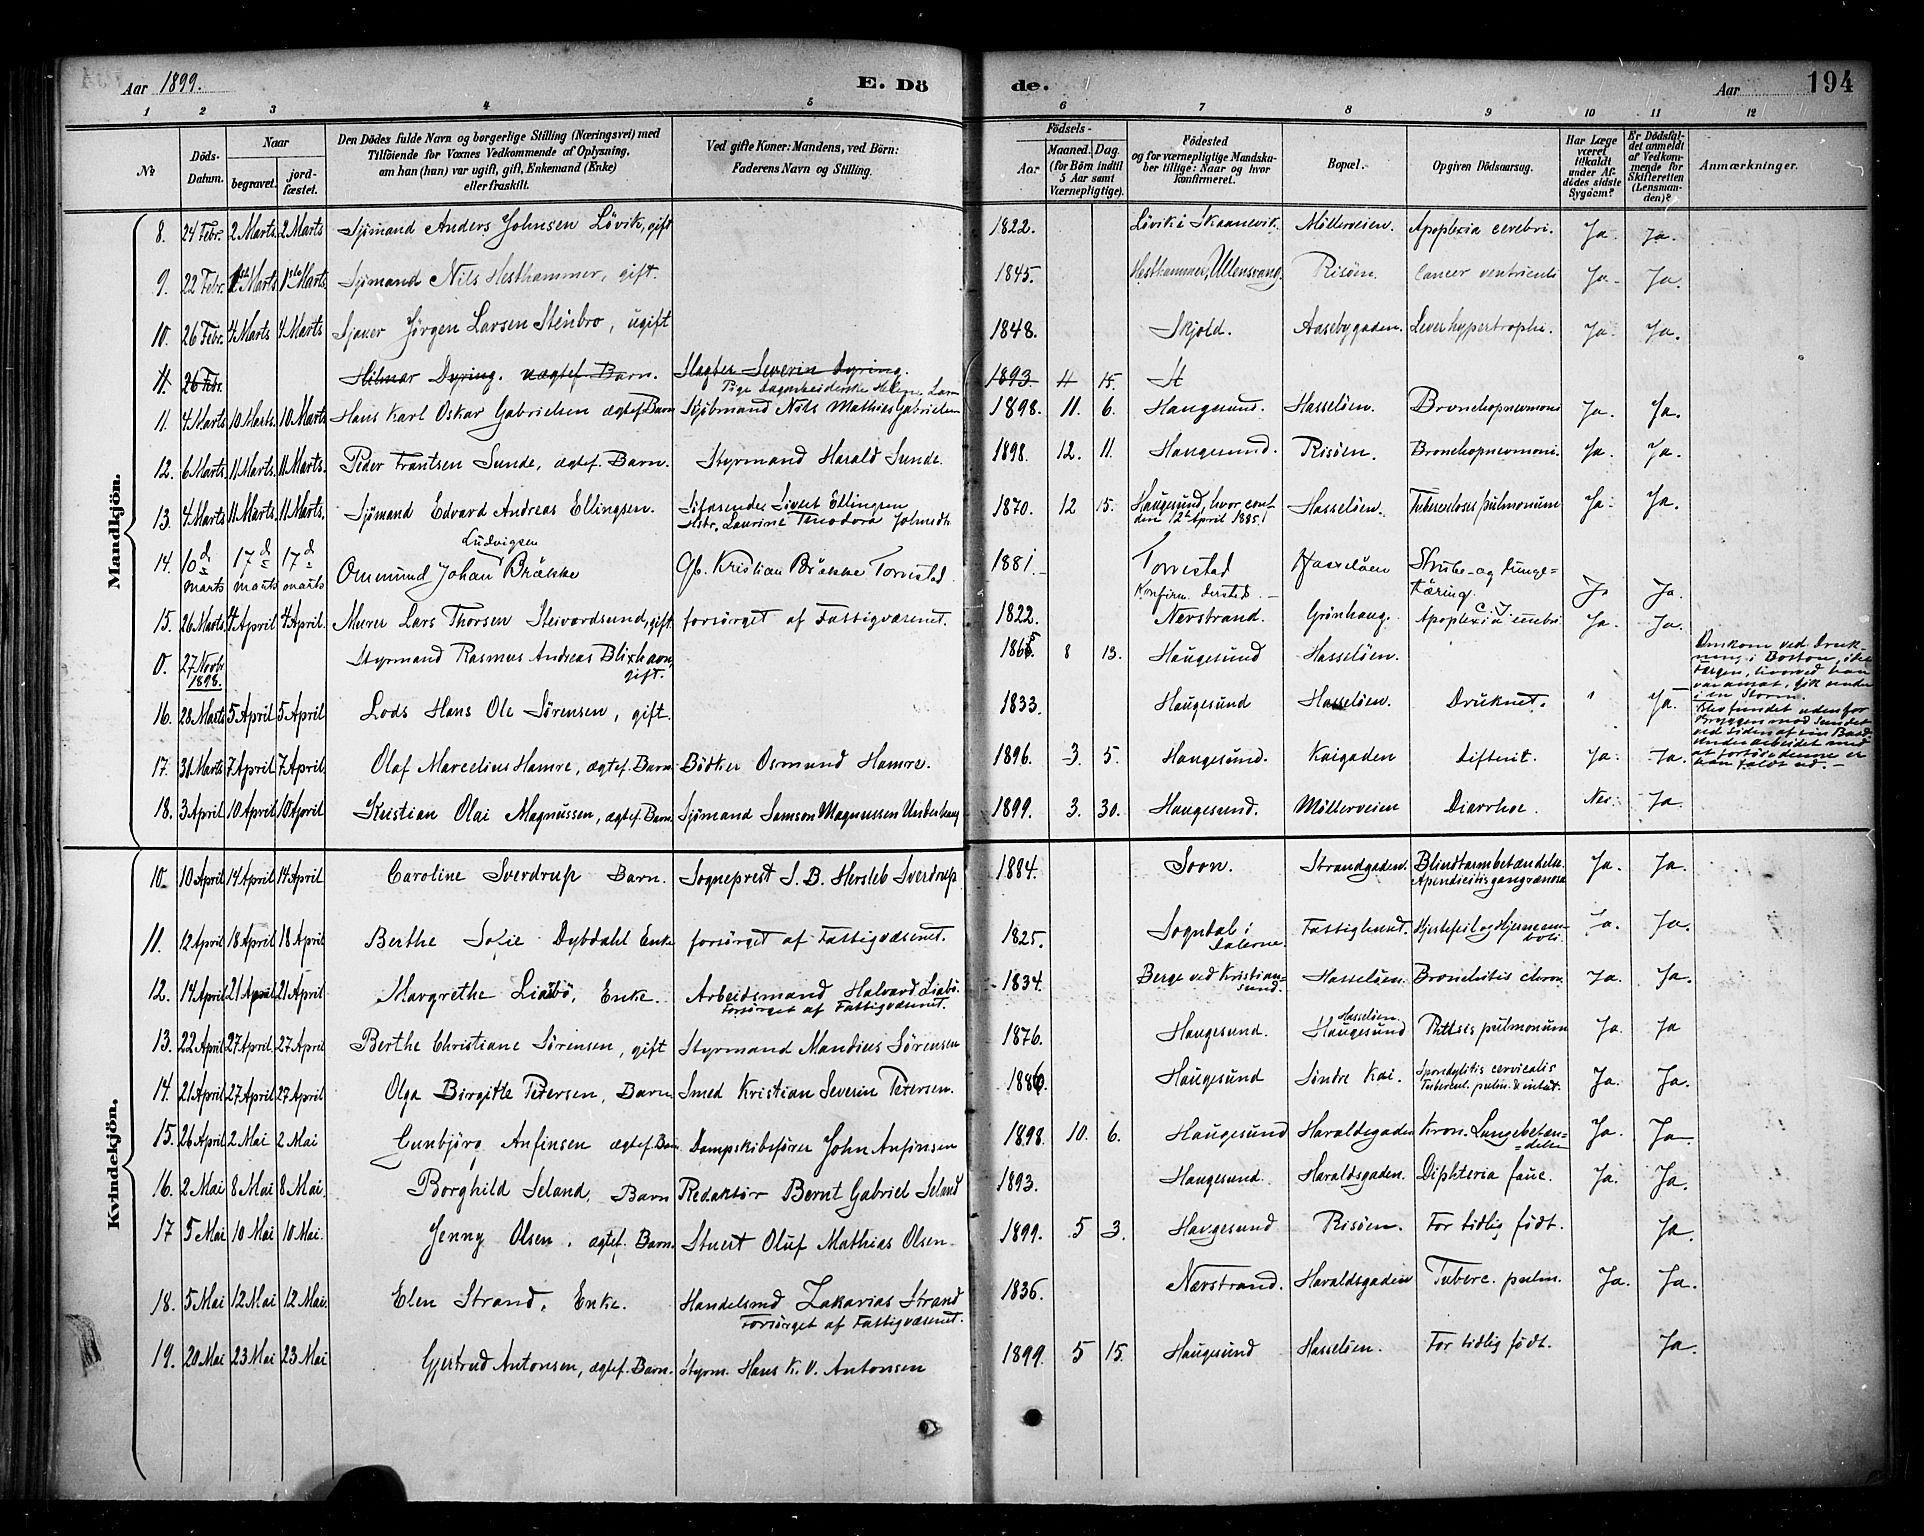 Aar 1899. E. Dö de. Aar 194
1 2 3 4 5 6 7 8 9 10 11 12
№ Döds-Datum. Naar begravet. jordfæstet. Den Dödes fulde Navn og borgerlige Stilling (Næringsvei) med Tilföiende for Voxnes Vedkommende af Oplysning, om han (hun) var ugift, gift, Enkemand (Enke) eller fraskilt. Ved gifte Koner: Mandens, ved Börn: Faderens Navn og Stilling. Födsels- Aar. Maaned. Dag. (for Börn indtil 5 Aar samt Værnepligtige). Födested og for værnepligtige Mandskaber tillige: Naar og hvor konfirmeret. Bopæl. Opgiven Dödsaarsag. Har Læge været tilkaldt under Afdödes sidste Sygdom? Er Dödsfaldet anmeldt af Vedkommende for Skifteretten (Lensmanden)? Anmærkninger.
Mandkjön.
8. 24 Febr. 2 Marts. 2 Marts Sjømand Anders Johnsen Løvik, gift 1822. Løvik i Skaanevik. Møllerveien. Apoplexia cerebri. Ja. Ja.
9. 22 Febr. 1ste Marts 1ste Marts. Sjømand Nils Hesthammer, gift. 1845. Hesthammer, Ullensvang. Risøen. Cancer ventriculi Ja. Ja.
10. 26 Febr. 4 Marts 4 Marts. Sjauer Jørgen Larsen Stenbro, ugift 1848. Skjold. Aasebygaden. Leverhypertrophi. Ja. Ja.
11. 26 Febr. Hilmar Dyring. uægtef. Barn. Slagter Severin Dyring. 1893. 11 15. H
Pige Dagarbeiderske Helene Lar
11. 4 Marts 10 Marts. 10 Marts Hans Karl Oskar Gabrielsen ægtef. Barn Sjømand Nils Mathias Gabrielsen 1898. 11. 6. Haugesund. Hasseløen. Bronchopneumoni Ja. Ja.
12. 6 Marts. 11 Marts. 11 Marts. Peder Frantsen Sunde, ægtef. Barn. Styrmand Harald Sunde. 1898. 12. 11. Haugesund. Risøen. Bronchopneumoni. Ja. Ja.
13. 4 Marts 11 Marts. 11 Marts. Sjømand Edvard Andreas Ellingsen. Sivert Ellingsen 1870. 12 15. Haugesund, hvor conf. Hasseløen. Tuberculosis pulmonum Ja. Ja.
Hstr. Laurine Theodora Johnsdtr den 12te April 1885.
Ludvigsen
14. 10de marts 17de marts 17de marts Ommund Johan Brække Gb. Kristian Brække Torvestad. 1881. Torvestad Hasseløen Strube- og Lunge-
Konfirm. dersteds tæring. Ja Ja.
15. 26 Marts. 4 April 4 April. Murer Lars Thorsen Steivardsund, gift. forsørget af Fattigvæsenet. 1822. Nerstrand. Grønhaug. Apoplexia cerebri Ja. Ja.
0. 27 Novb. 1898. Styrmand Rasmus Andreas Blixhavn, gift. 1865. 8 13. Haugesund Hasseløen. Omkom ved Druk-
ning i Boston, idet
Lægteren, hvorved han
var ansat, gik under
i en Storm.
16. 28 Marts 5 April 5 April Lods Hans Ole Sørensen, gift. 1833. Haugesund Hasseløen. Druknet. " Ja. Blev fundet udenfor
Bryggen mod Sundet
ved siden af sin Baad
under arbeidet med
at fortøie denne er
han faldt ud.
17. 31 Marts 7 April 7 April. Olaf Marcelius Hamre, ægtef. Barn. Bødker Osmund Hamre. 1896. 3. 5. Haugesund. Kaigaden difterit. Ja. Ja.
18. 3 April 10 April 10 April Kristian Olai Magnussen, ægtef. Barn. Sjømand Samson Magnussen Underhaug 1899. 3. 30. Haugesund. Møllerveien Diarrhoe. Nei. Ja.
Kvindekjön.
10. 10 April 14 April 14 April Caroline Sverdrup Barn. Sogneprest S. B. Hersleb Sverdrup 1884. Soon. Strandgaden. Blindtarmbetændelse. Ja. Ja.
Apendicitis gangrænosa
11. 12 April 18 April 18 April Berthe Sofie Dybdahl Enke forsørget af Fattigvæsenet. 1825. Sogndal i Fattighuset. Hjertefeil og Hjerneem- Ja. Ja.
Dalerne. boli.
12. 14 April 21 April 21 April Margrethe Liabø, Enke. Arbeidsmand Halvard Liabø. 1834. Berge ved Kristian- Hasseløen. Bronchitis chron. Ja. Ja.
Forsørget af Fattigvæsenet. sund.
Hasseløen.
13. 22 April 27 April. 27 April Berthe Christiane Sørensen, gift Styrmand Mandius Sørensen 1876. Haugesund. Haugesund Phtisis pulmonum Ja. Ja
14. 21 April 27 April 27 April Olga Birgitte Petersen, Barn Smed Kristian Severin Petersen. 1886. Haugesund Søndre Kai. Spondylitis cervicalis Ja. Ja.
Tubercul. pulm. & intest.
15. 26 April 2 Mai 2 Mai Gunbjørg Anfinsen ægtef. Barn. Dampskibsfører John Anfinsen 1898. 10. 6. Haugesund Haraldsgaden Kron. Lungebetæn- Ja. Ja
delse
16. 2 Mai 8 Mai 8 Mai. Borghild Seland, Barn Redaktør Bernt Gabriel Seland 1893. Haugesund. Haraldsgaden. Diphteria fauc. Ja. Ja.
17 5 Mai 10 Mai 10 Mai. Jenny Olsen, ægtef. Barn. Stuert Oluf Mathias Olsen 1899. 5 3. Haugesund Risøen. For tidlig født. Ja.
18. 5 Mai 12 Mai 12 Mai. Elen Strand, Enke. Handelsmd Zakarias Strand 1836. Nerstrand. Haraldsgaden Tuberc. pulm. Ja. Ja.
Forsørget af Fattigvæsenet.
19. 20 Mai 23 Mai 23 Mai Gjertrud Antonsen, ægtef. Barn. Styrm. Hans K. V. Antonsen 1899. 5 15. Haugesund Hasseløen. For tidlig født. Ja.